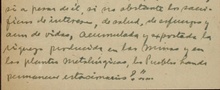 si a pesar de él, si no obstante los sacri-
ficios de intereses, de salud, de esfuerzo y
aun de vidas, acumulada y exportada la
riqueza producida en las minas y en
las plantas metalúrgicas, los Pueblos han de
permanecer estacionarios?"